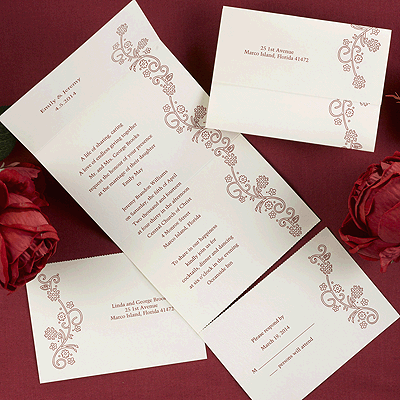 Emily & Jeremy
4.5.2014
A life of sharing, caring
A love of endless giving together
Mr. and Mrs. George Brooks
request the honour of your presence
at the marriage of their daughter
Emily May
to
Jeremy Brandon Williams
on Saturday, the fifth of April
Two thousand and fourteen
at four thirty in the afternoon
Central Church of Christ
4 Monroe Street
Marco Island, Florida
To share in our happiness
kindly join us for
cocktails, dinner and dancing
at six o'clock in the evening
Oceanside Inn
25 1st Avenue
Marco Island, Florida 41472
Linda and George Brooks
25 1st Avenue
Marco Island, Florida 41472
Please respond by
March 10, 2014
M
persons will attend